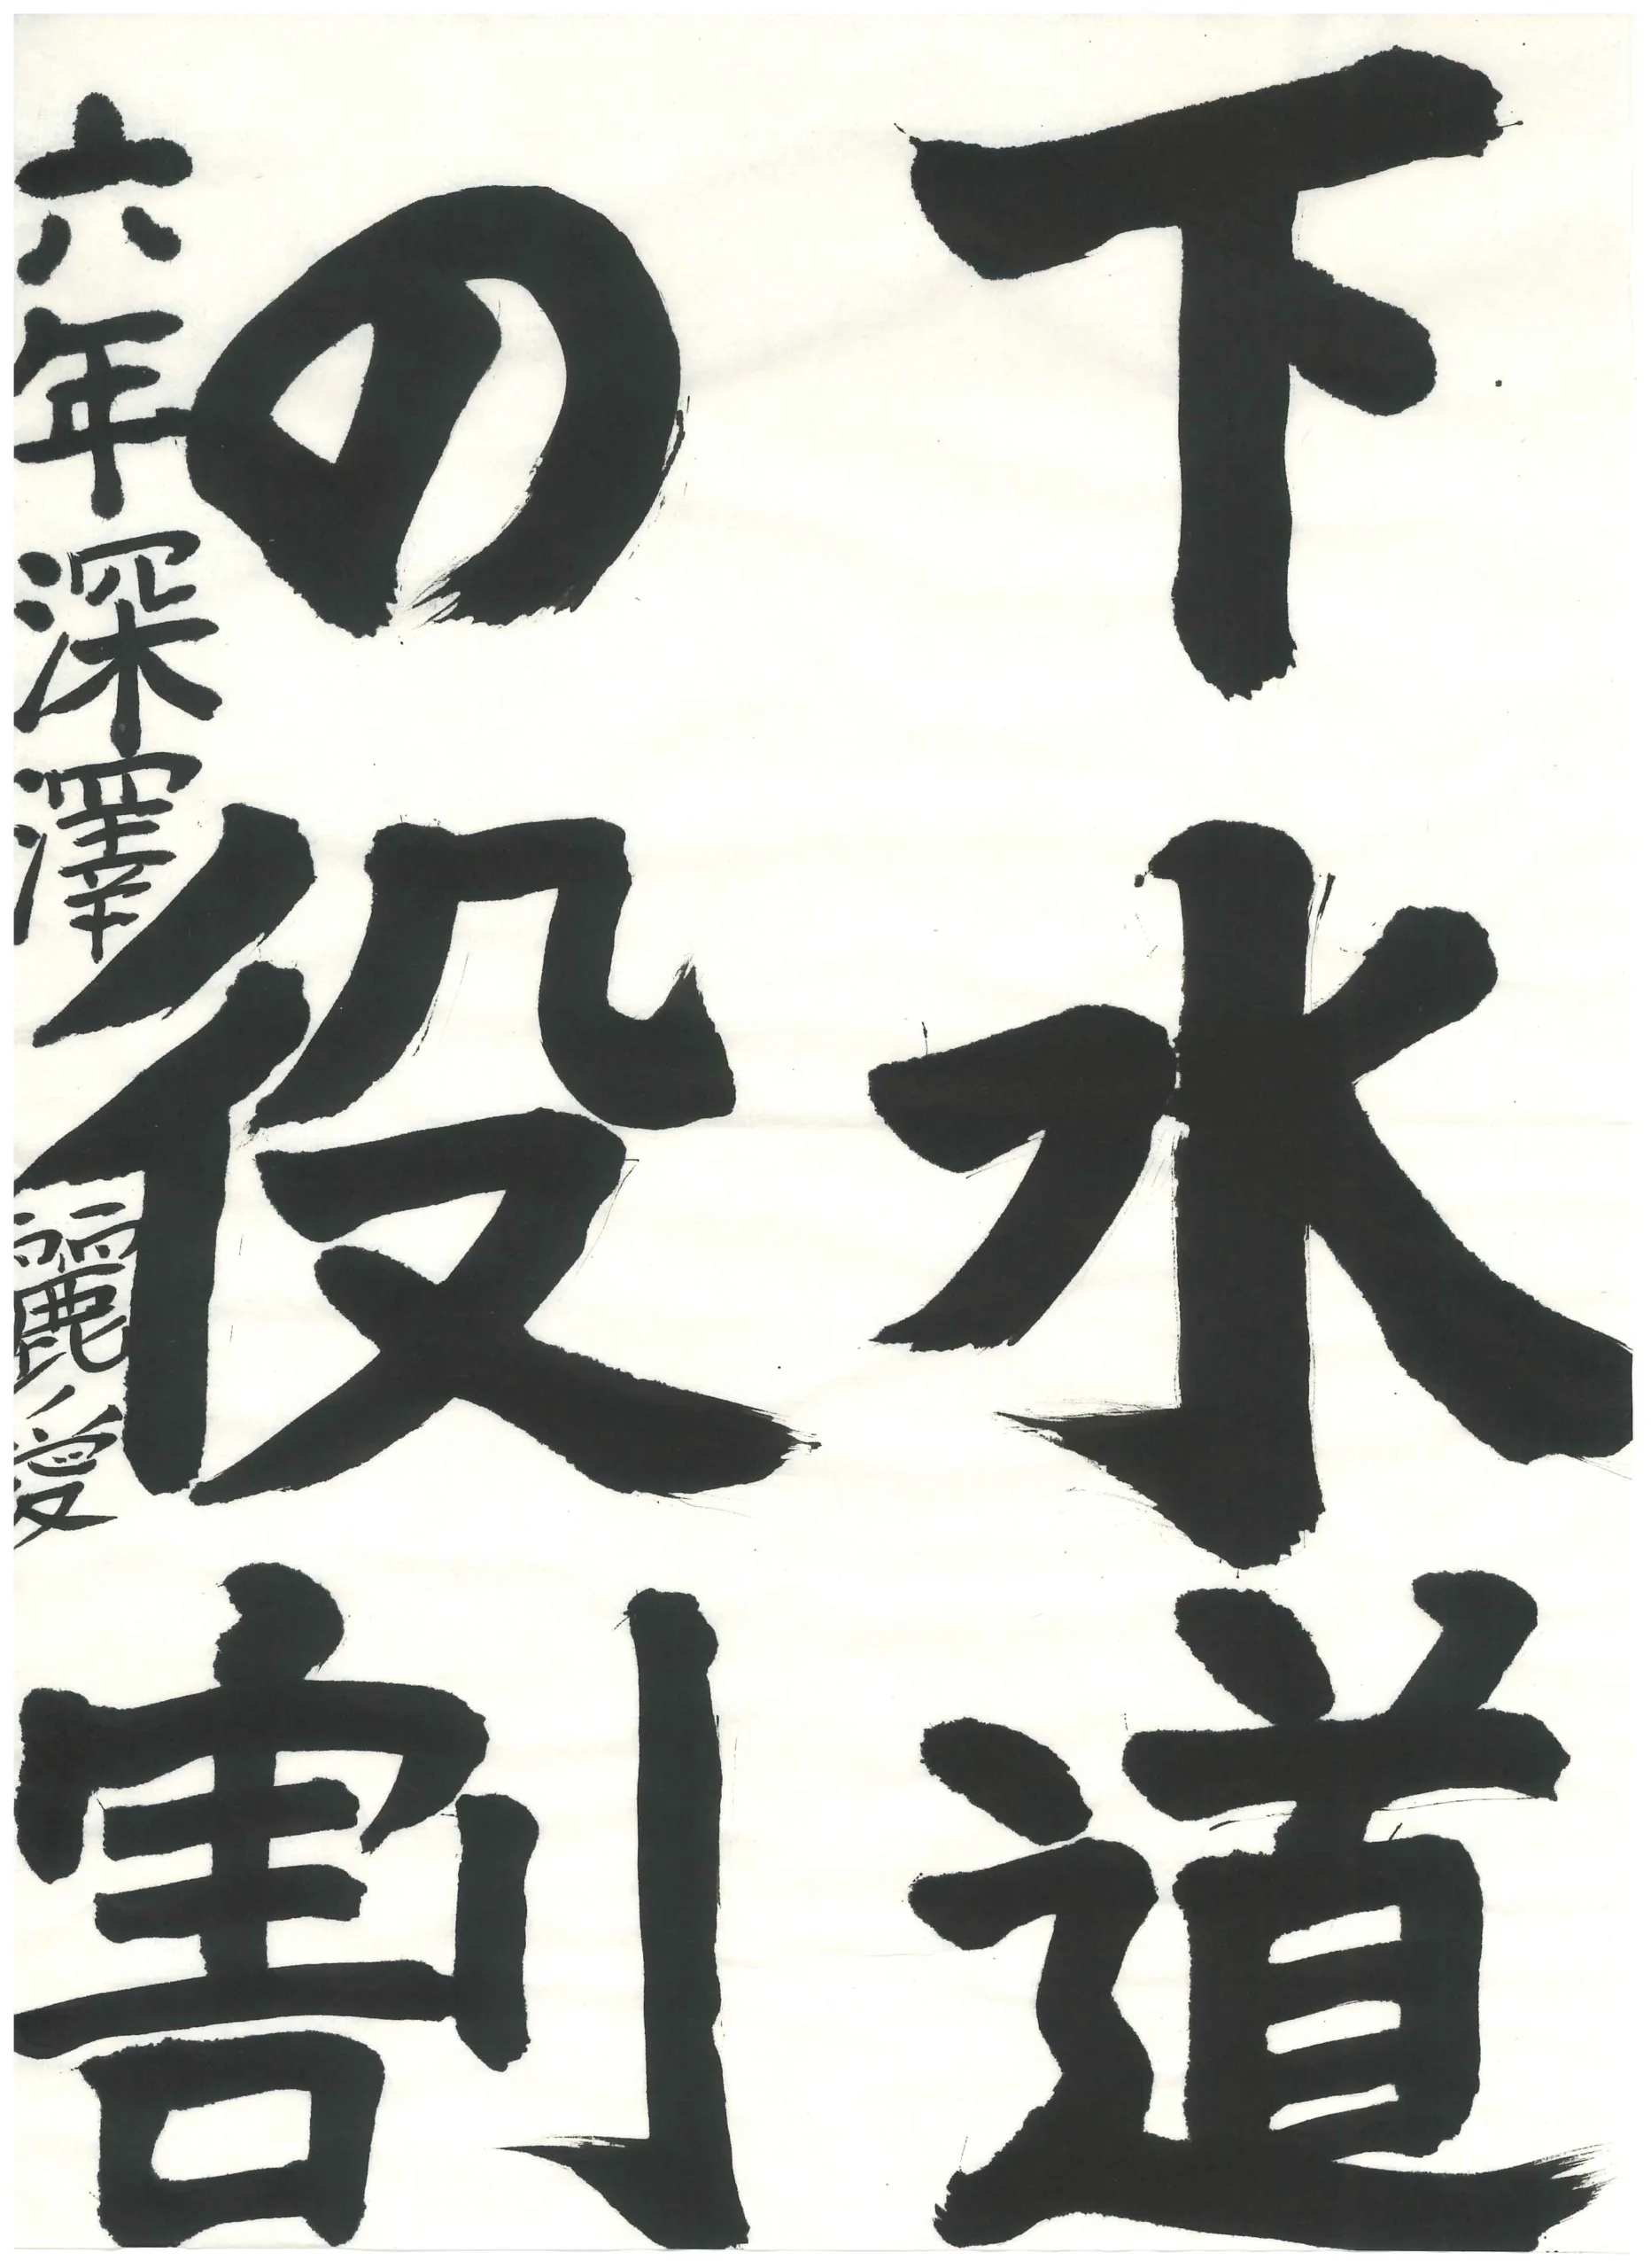 下水道
の役割
六年深澤麗愛